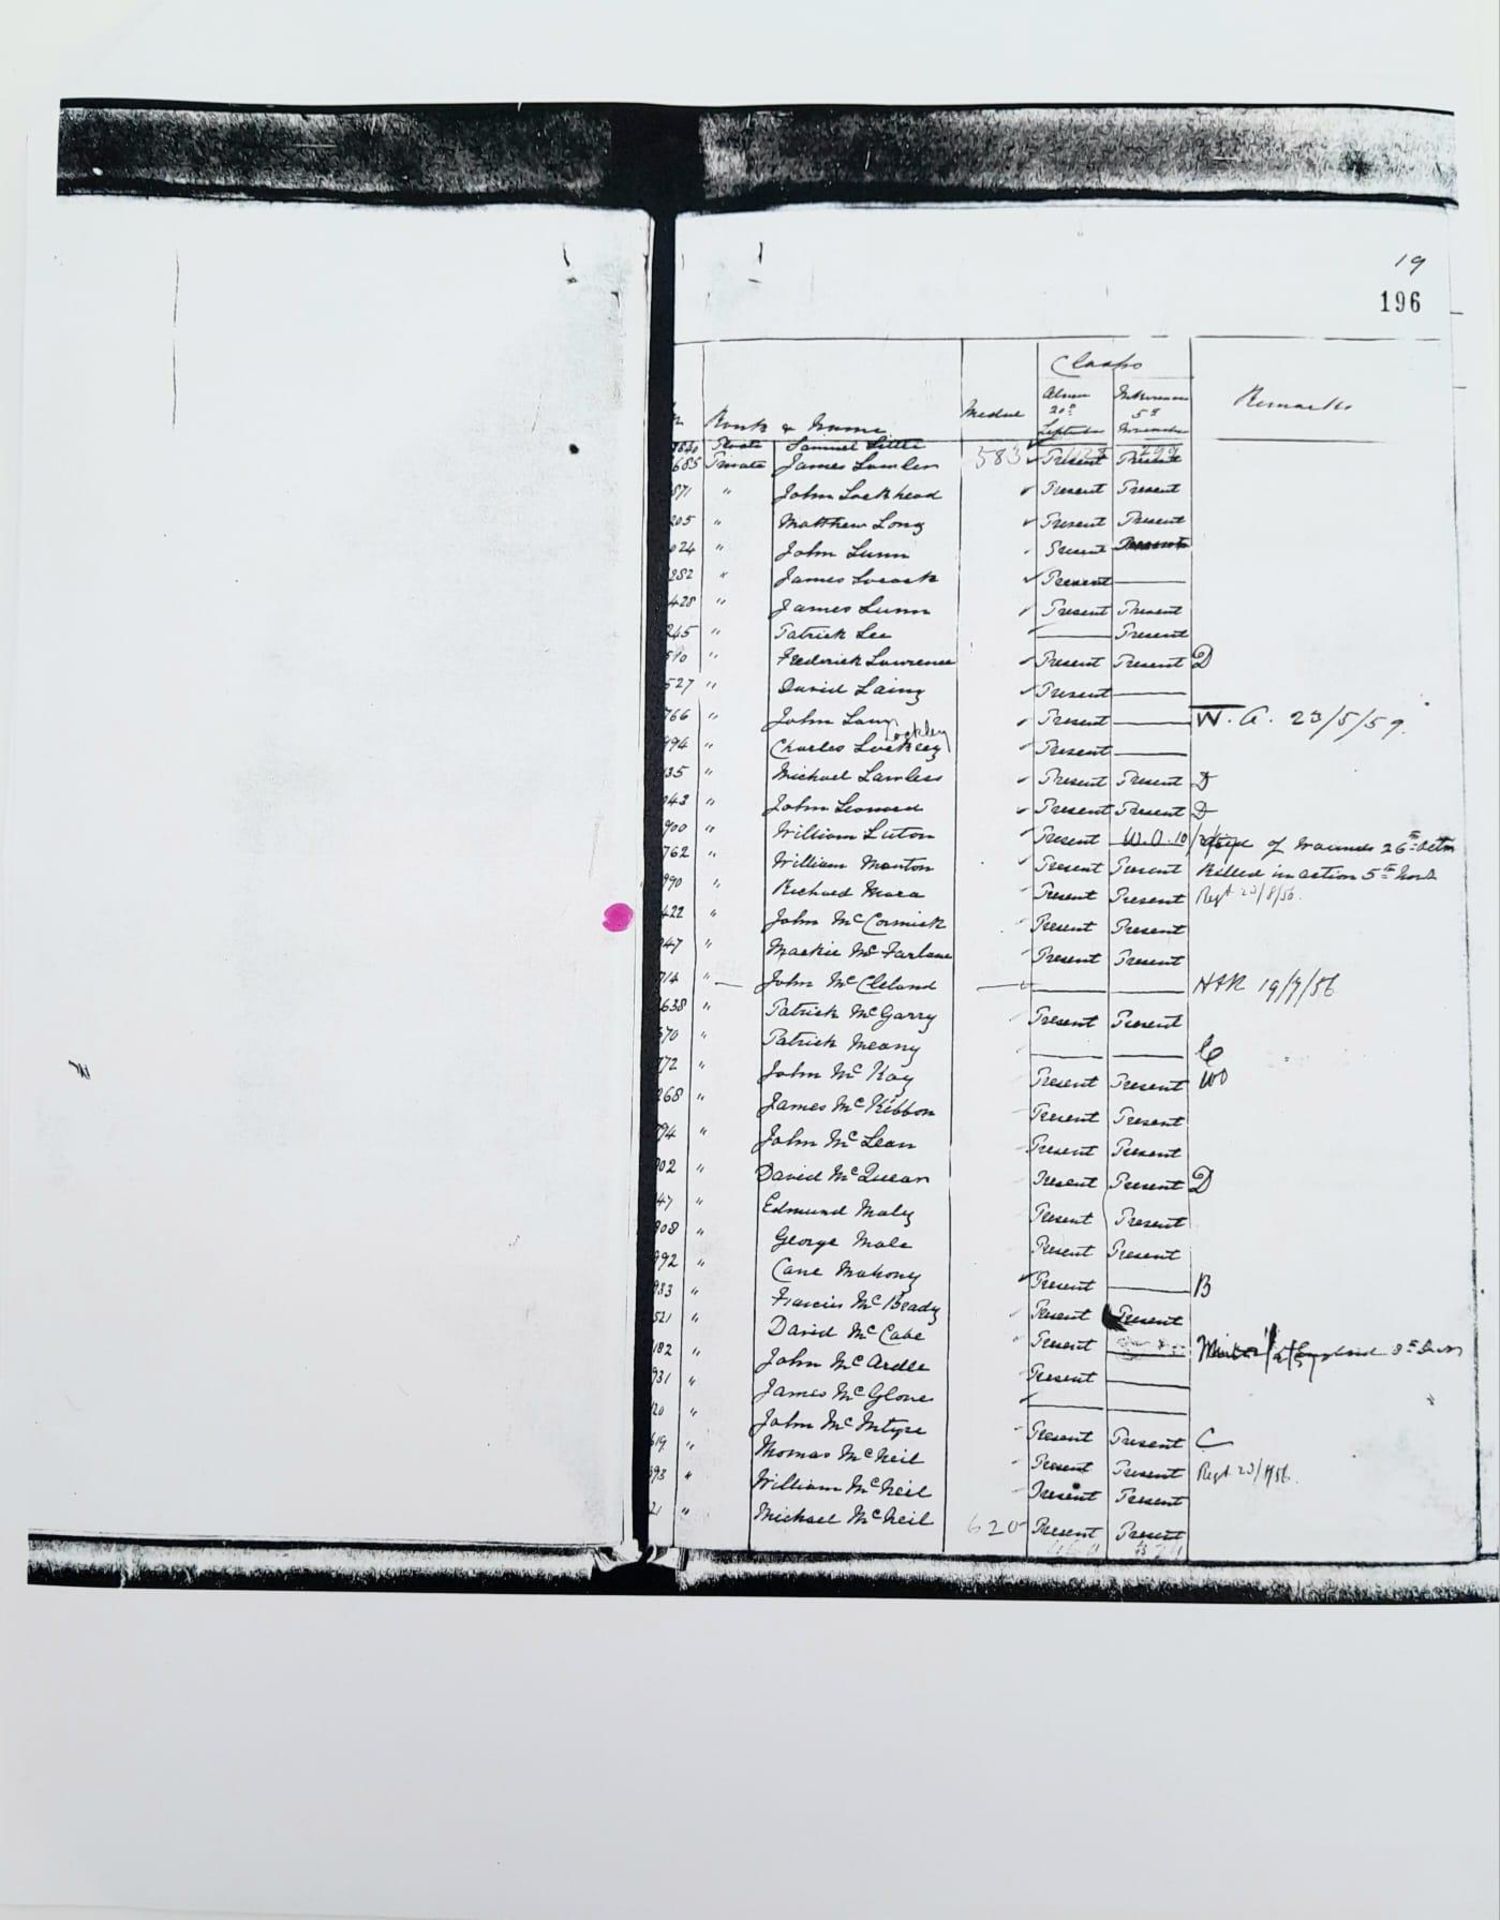 19
196
Clasps
Alma 20th September
Inkerman 5th November
Rank & Name
Medal
Remarks
Private Samuel Little
685 Private James Lawler 583 Present Present
871 " John Lockhead Present Present
205 " Matthew Long Present Present
024 " John Lunn Present Present
282 " James Lucock Present —
428 " James Lunn Present Present
245 " Patrick Lee — Present
510 " Frederick Lawrence Present Present D
527 " David Laing Present —
766 " John Lang Present — W. O. 23/5/57.
ockley
994 " Charles Locksey Present —
35 " Michael Lawless Present Present D
043 " John Leonard Present Present D
900 " William Luton Present W.O. 10/ of wounds 26th
762 " William Manton Present Present Killed in action 5th Novr
990 " Richard Mara Present Present Regt 23/8/56.
422 " John McCormick Present Present
947 " Mackie McFarlane Present Present
714 " — John McCleland — — — 19/7/56
638 " Patrick McGarry Present Present
570 " Patrick Meany — —
772 " John McKay Present Present WO
268 " James McKibbon Present Present
794 " John McLean Present Present
902 " David McQuean Present Present D
47 " Edmund Maly Present Present
908 " George Male Present Present
992 " Cane Mahony Present — B
933 " Francis McBrady Present Present
521 " David McCabe Present
182 " John McArdle Present —
931 " James McGlone — —
20 " John McIntyre Present Present C
619 " Thomas McNeil Present Present Regt 23/
993 " William McNeil Present Present
21 " Michael McNeil 620 Present Present